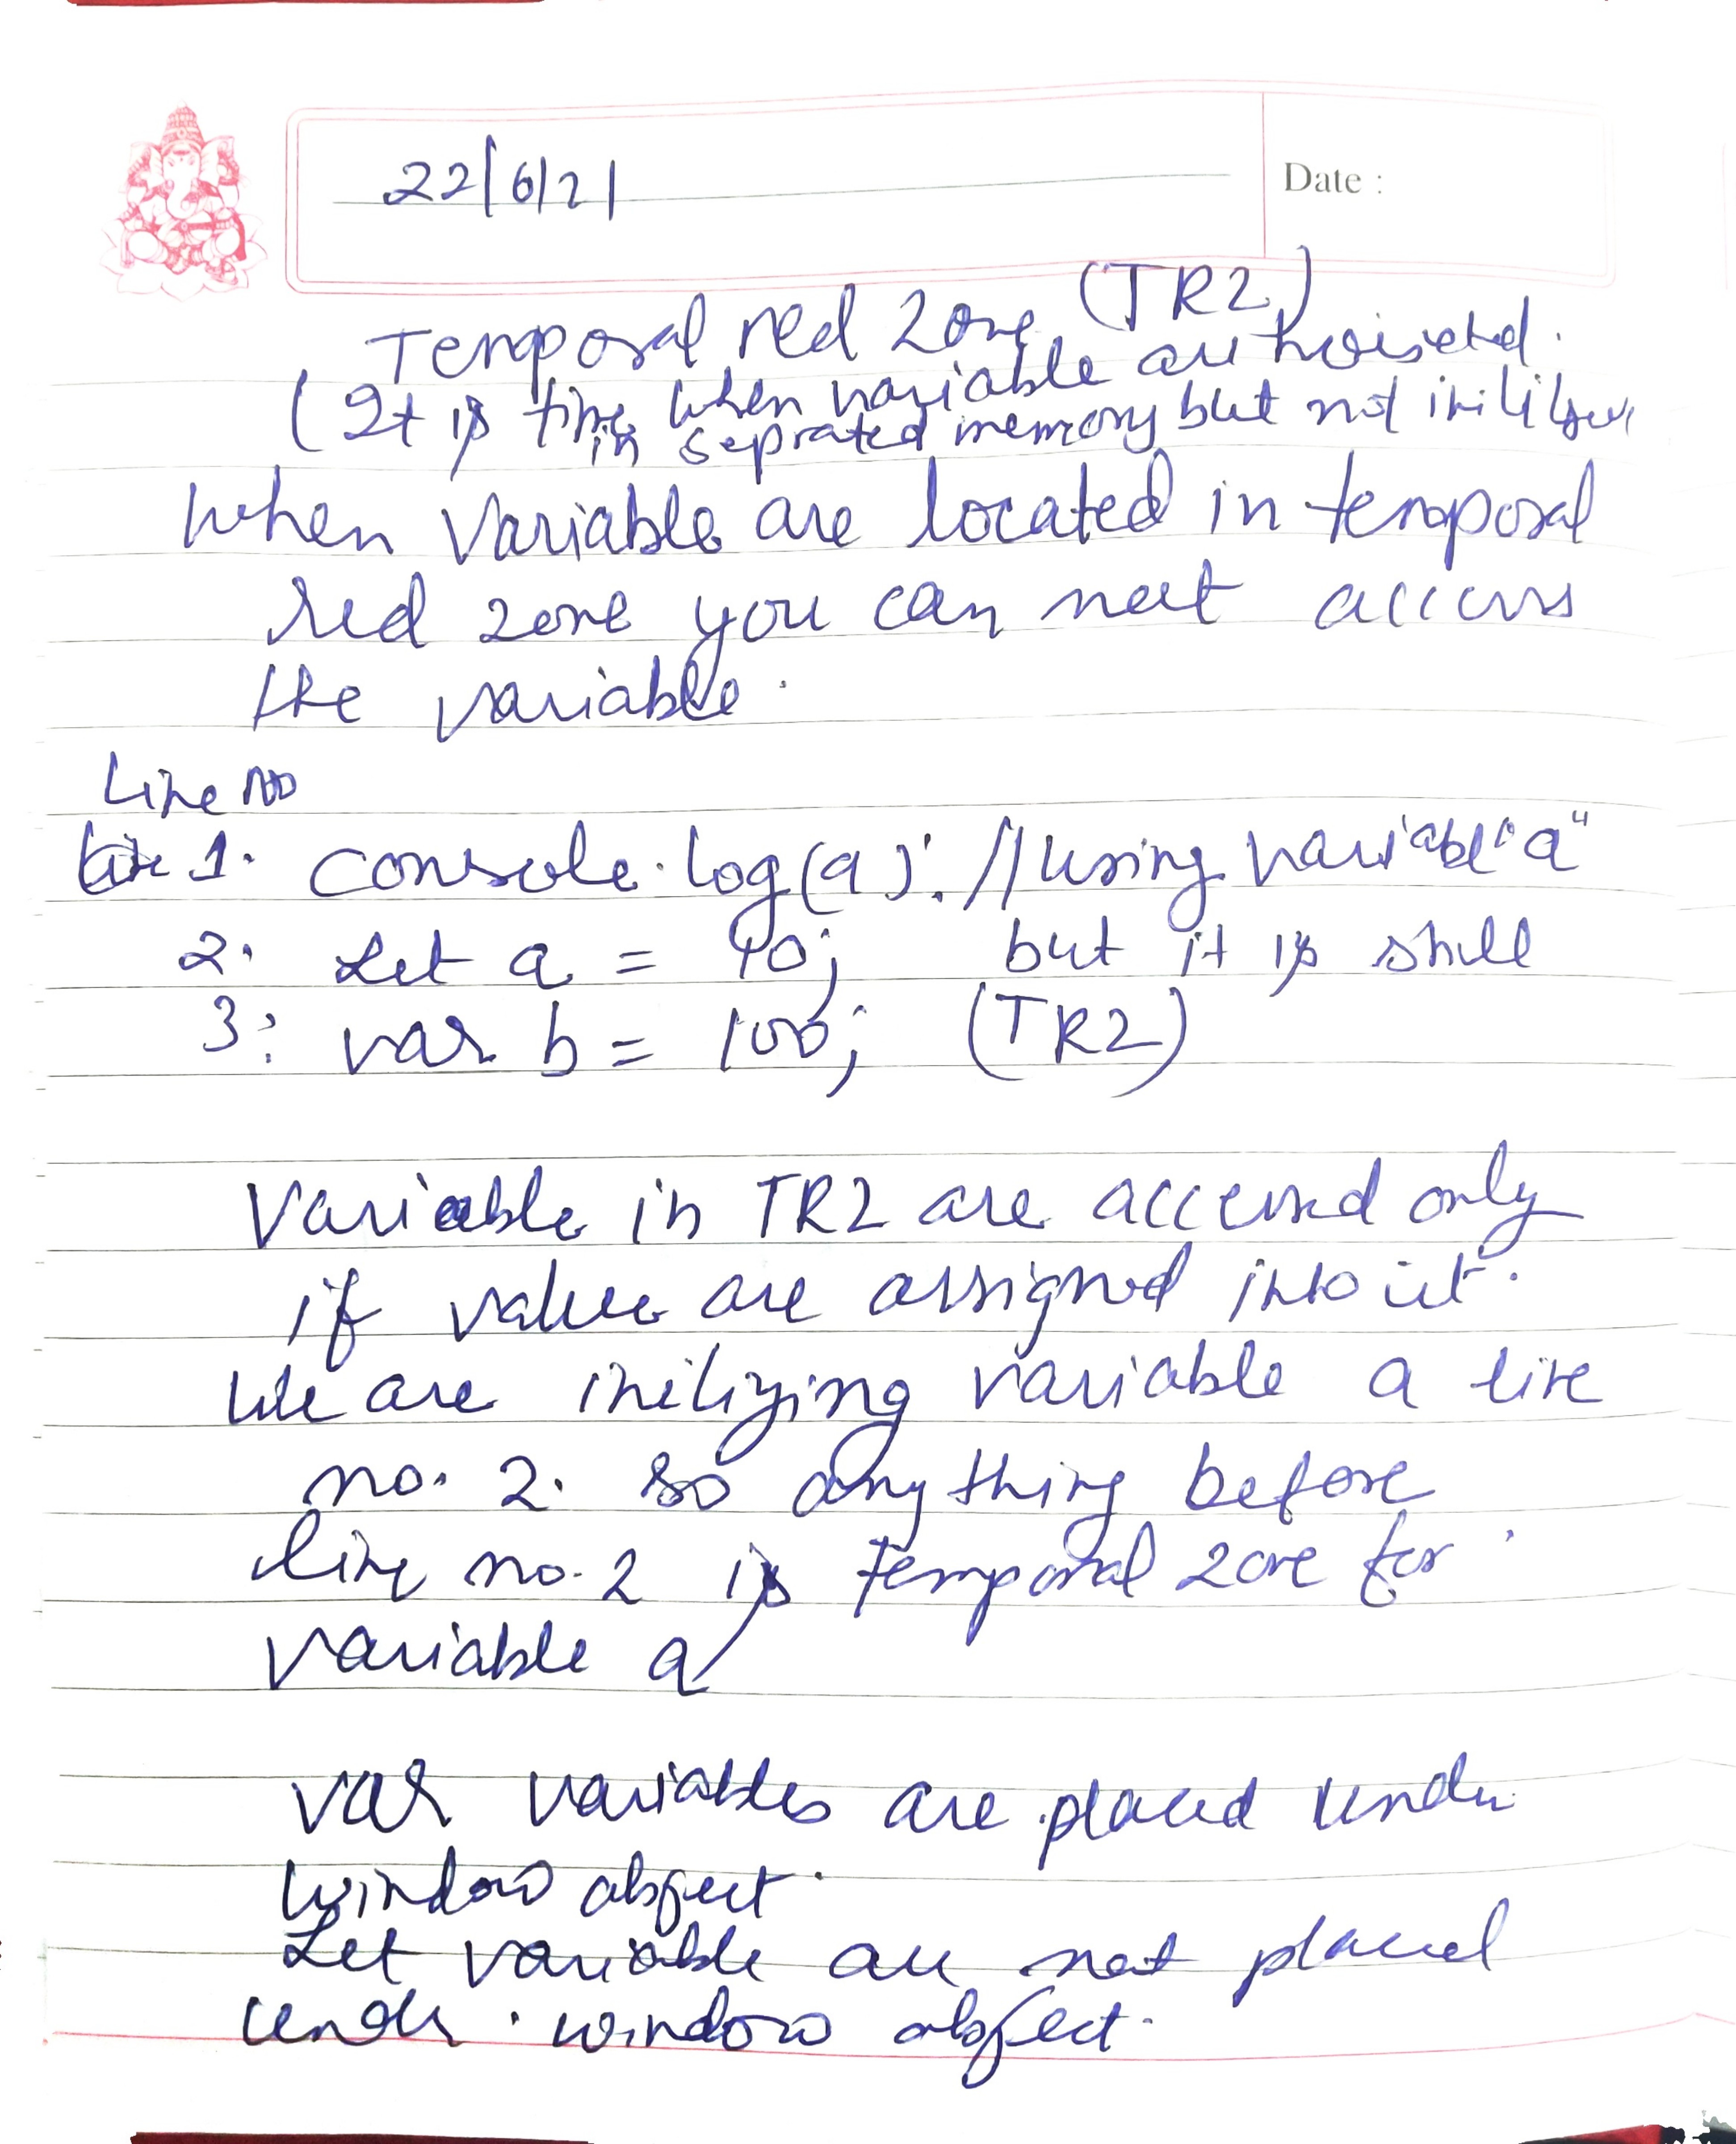 22/6/21
Date :
Temporal red zone (TRZ)
(It is time when variable are hoiseted.
in seprated memory but not
when variable are located in temporal
red zone you can not access
the variable.
Line no
1. console.log(a); // using variable "a"
2. Let a = 40; but it is still
3: var b = 100; (TRZ)
Variable in TRZ are accessed only
if value are assigned into it.
We are inilizing variable a line
no. 2. so any thing before
line no. 2 is temporal zone for
variable a
var variables are placed under
window object.
Let variable are not placed
under window object.